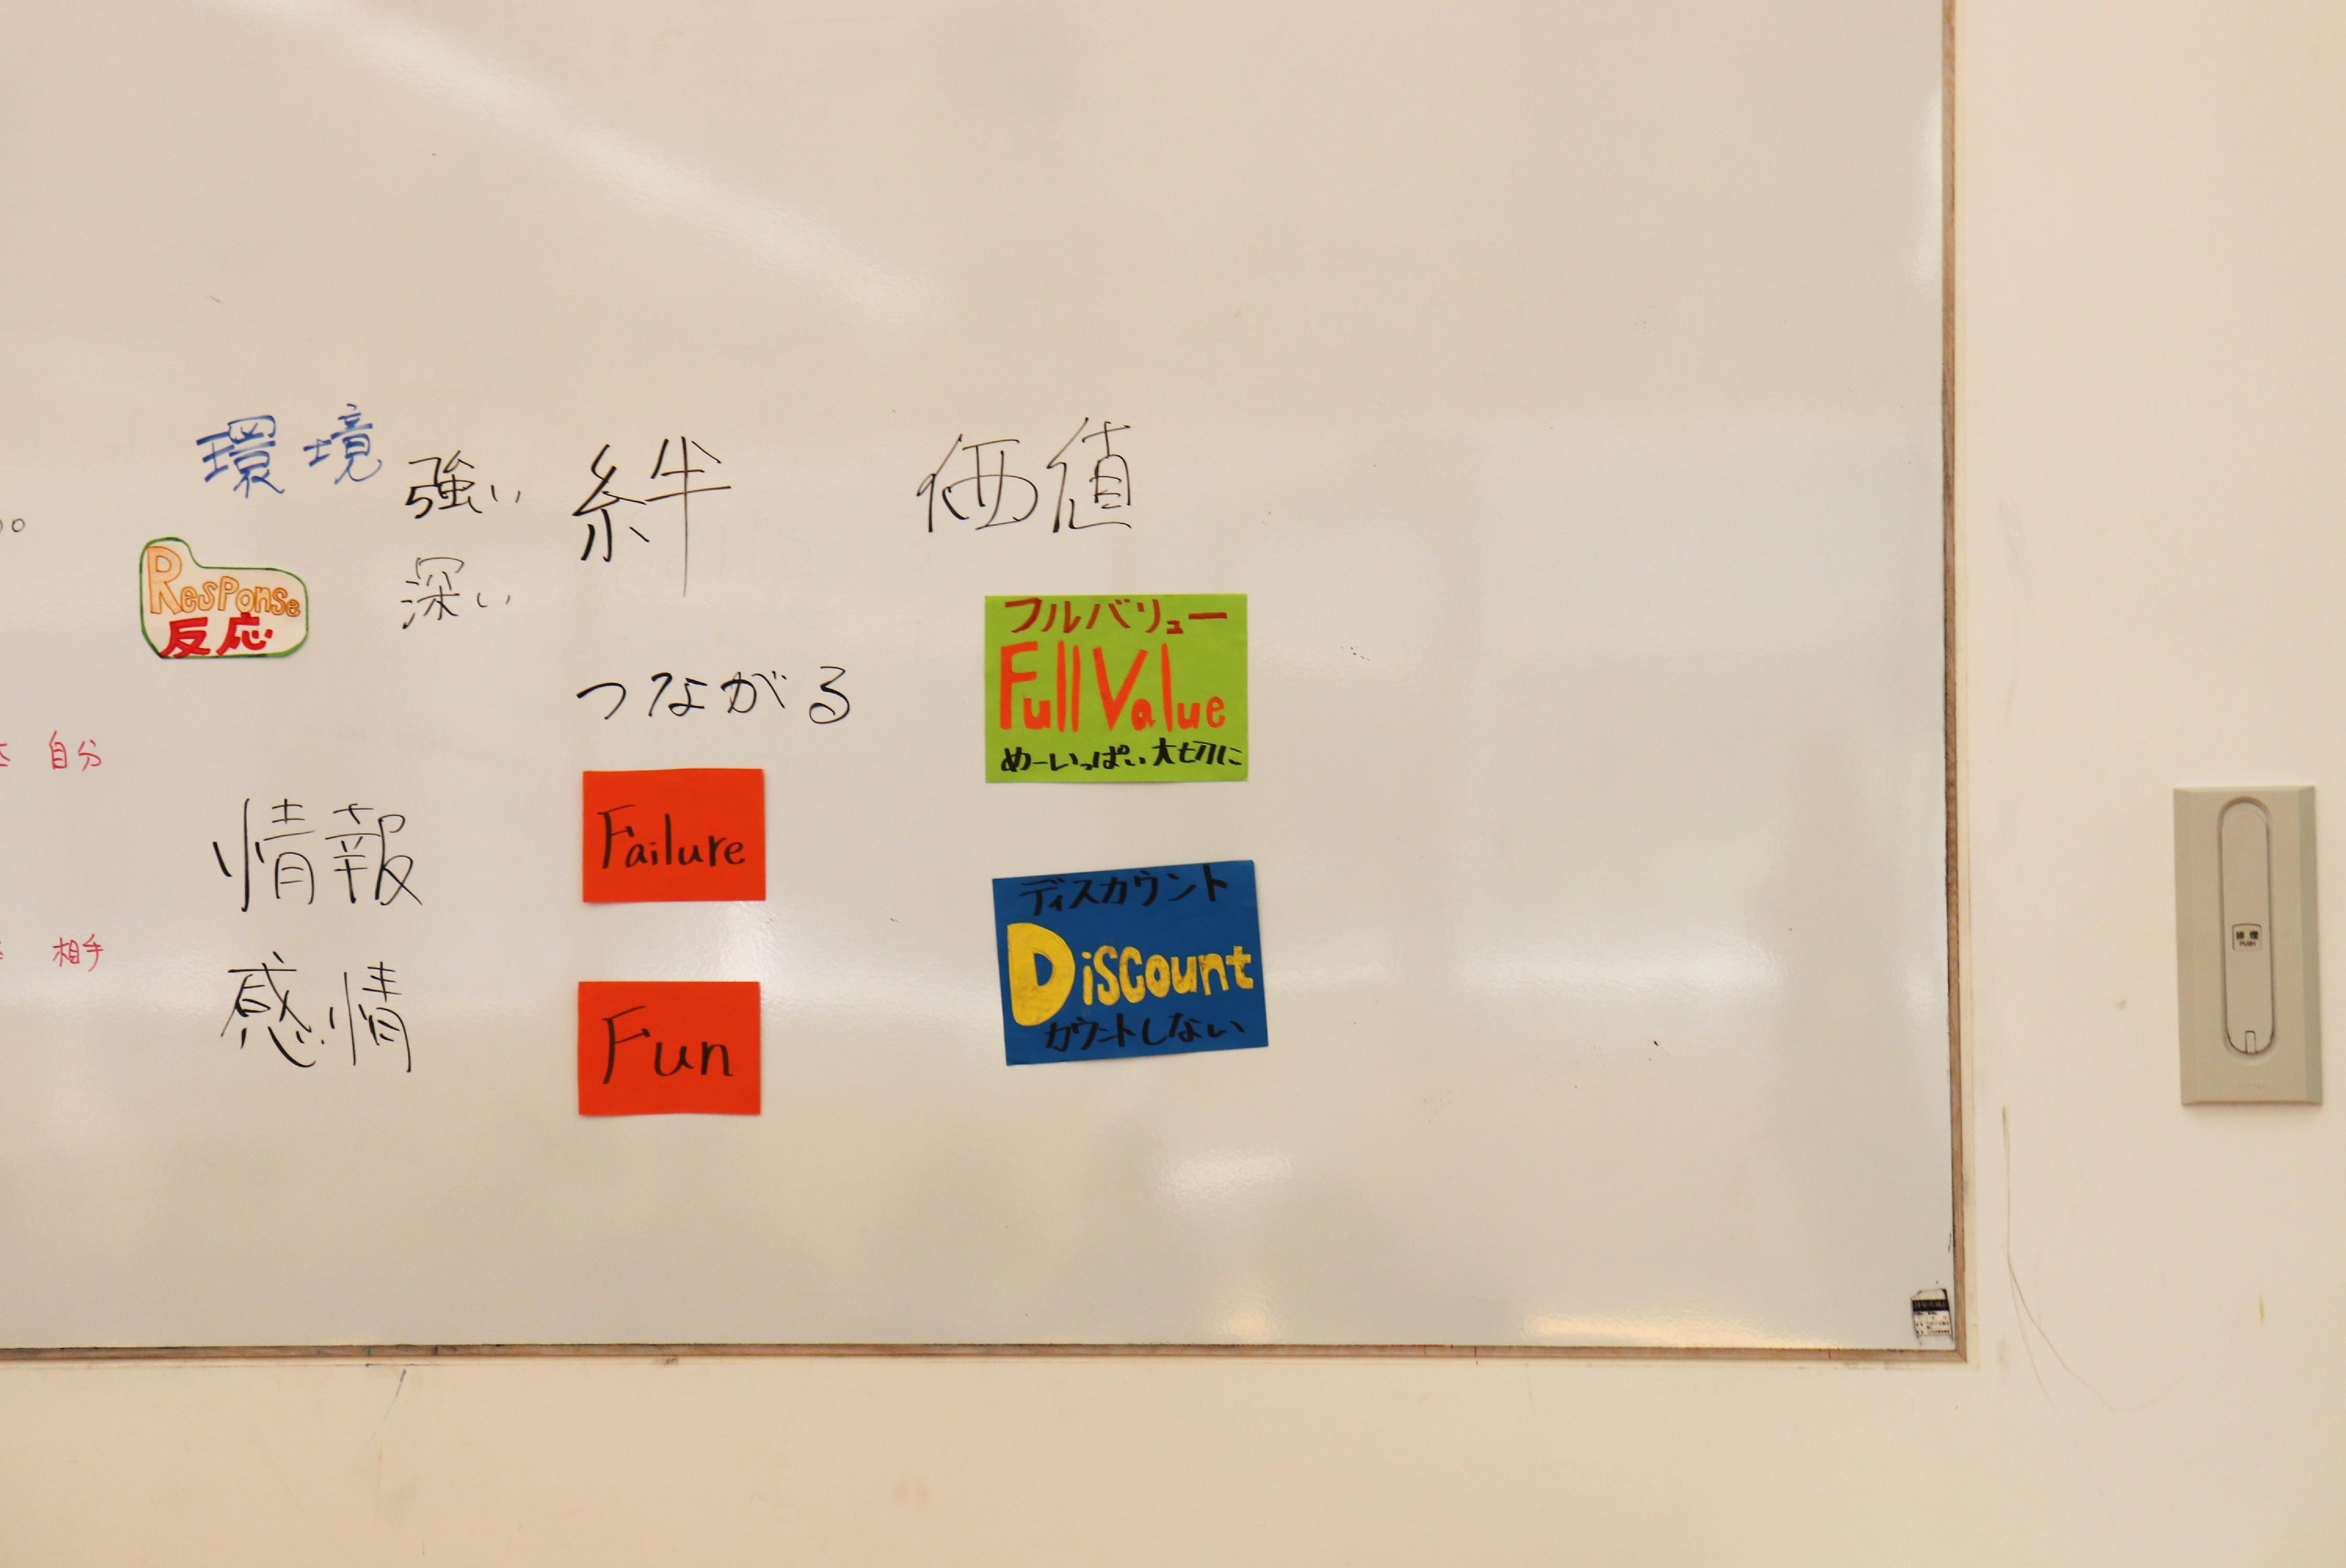 環境
強い
深い
Response
反応
自分
情報
相手
感情
絆
つながる
Failure
Fun
価値
フルバリュー
Full Value
めーいっぱい大切に
ディスカウント
Discount
カウントしない
排煙
PUSH